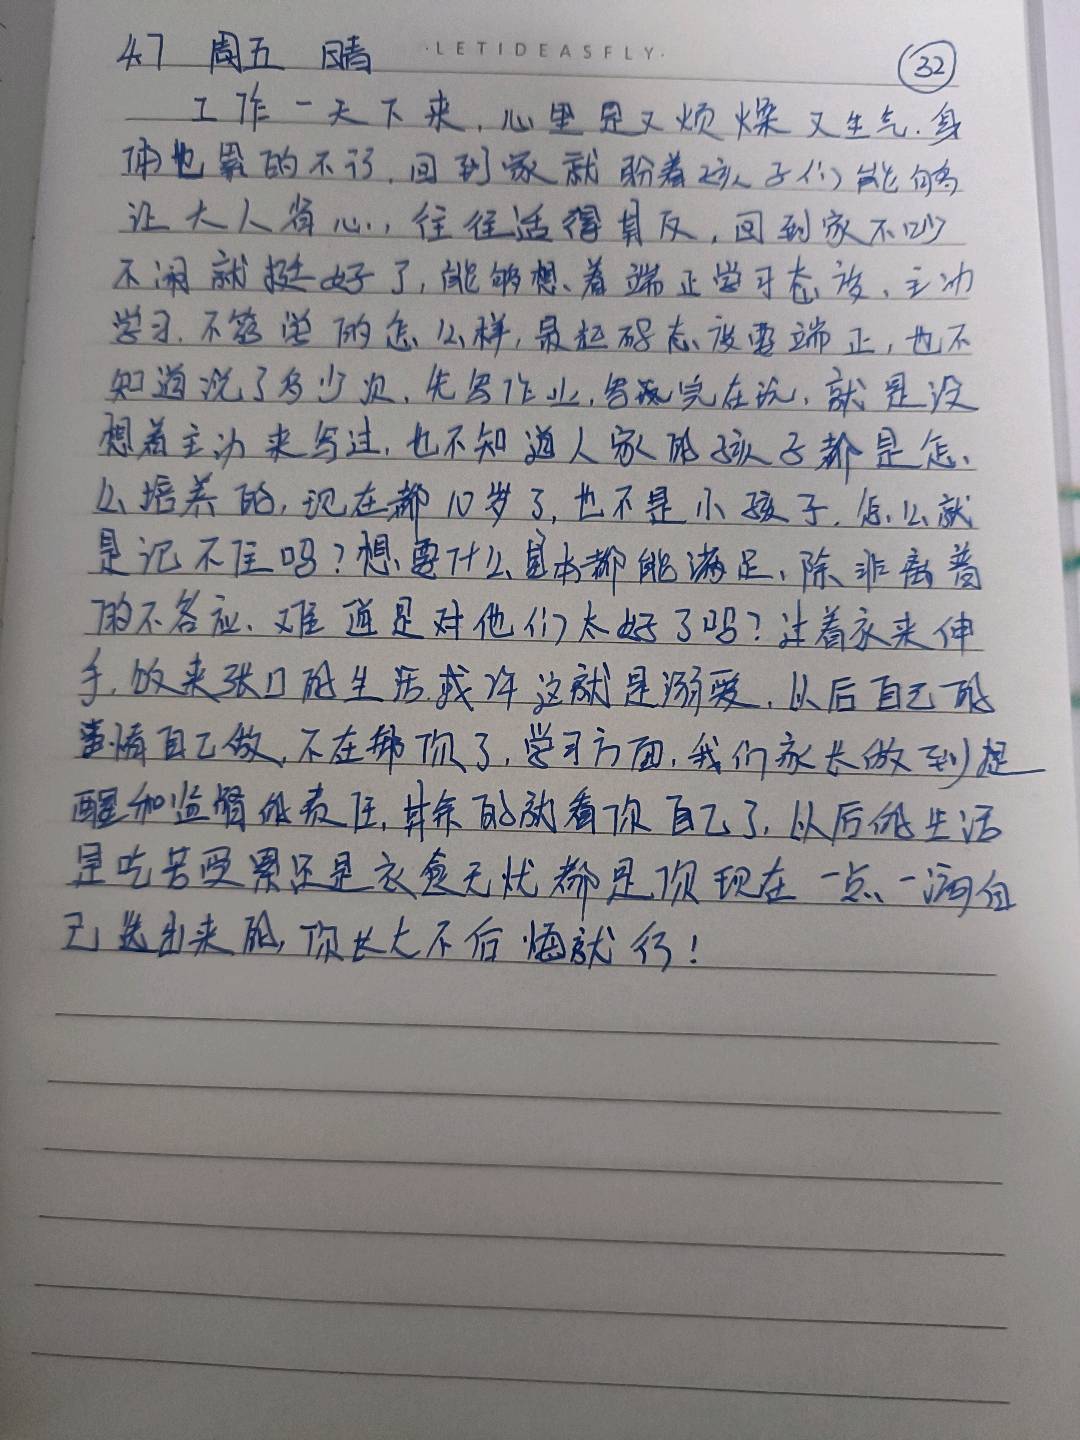 4.7 周五 晴 ·LETIDEASFLY· 32
工作一天下来,心里是又烦燥又生气.身
体也累的不行,回到家就盼着孩子们能够
让大人省心,往往适得其反,回到家不吵
不闹就挺好了,能够想着端正学习态度、主动
学习.不管学的怎么样,最起码态度要端正,也不
知道说了多少次,先写作业,写完在玩,就是没
想着主动来写过,也不知道人家的孩子都是怎
么培养的,现在都10岁了,也不是小孩子,怎么就
是记不住吗?想要什么基本都能满足、除非离普
的不答应、难道是对他们太好了吗?过着衣来伸
手,饭来张口的生活或许这就是溺爱,以后自己的
事情自己做,不在帮你了,学习方面,我们家长做到提
醒和监督的责任,其余的就看你自己了,以后的生活
是吃苦受累还是衣食无忧都是你现在一点一滴自
己选出来的,你长大不后悔就行!